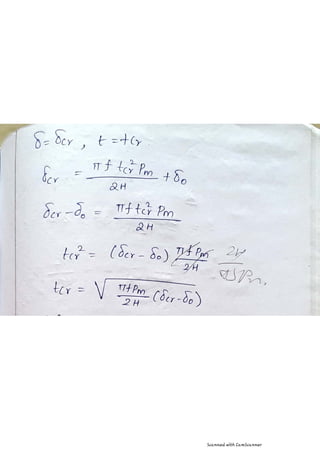 δ = δcr , t = tcr
δcr = π f tcr² Pm / 2H + δ₀
δcr - δ₀ = π f tcr² Pm / 2H
tcr² = (δcr - δ₀) π f Pm / 2H 2H /
tcr = √ π f Pm / 2H (δcr - δ₀)
Scanned with CamScanner